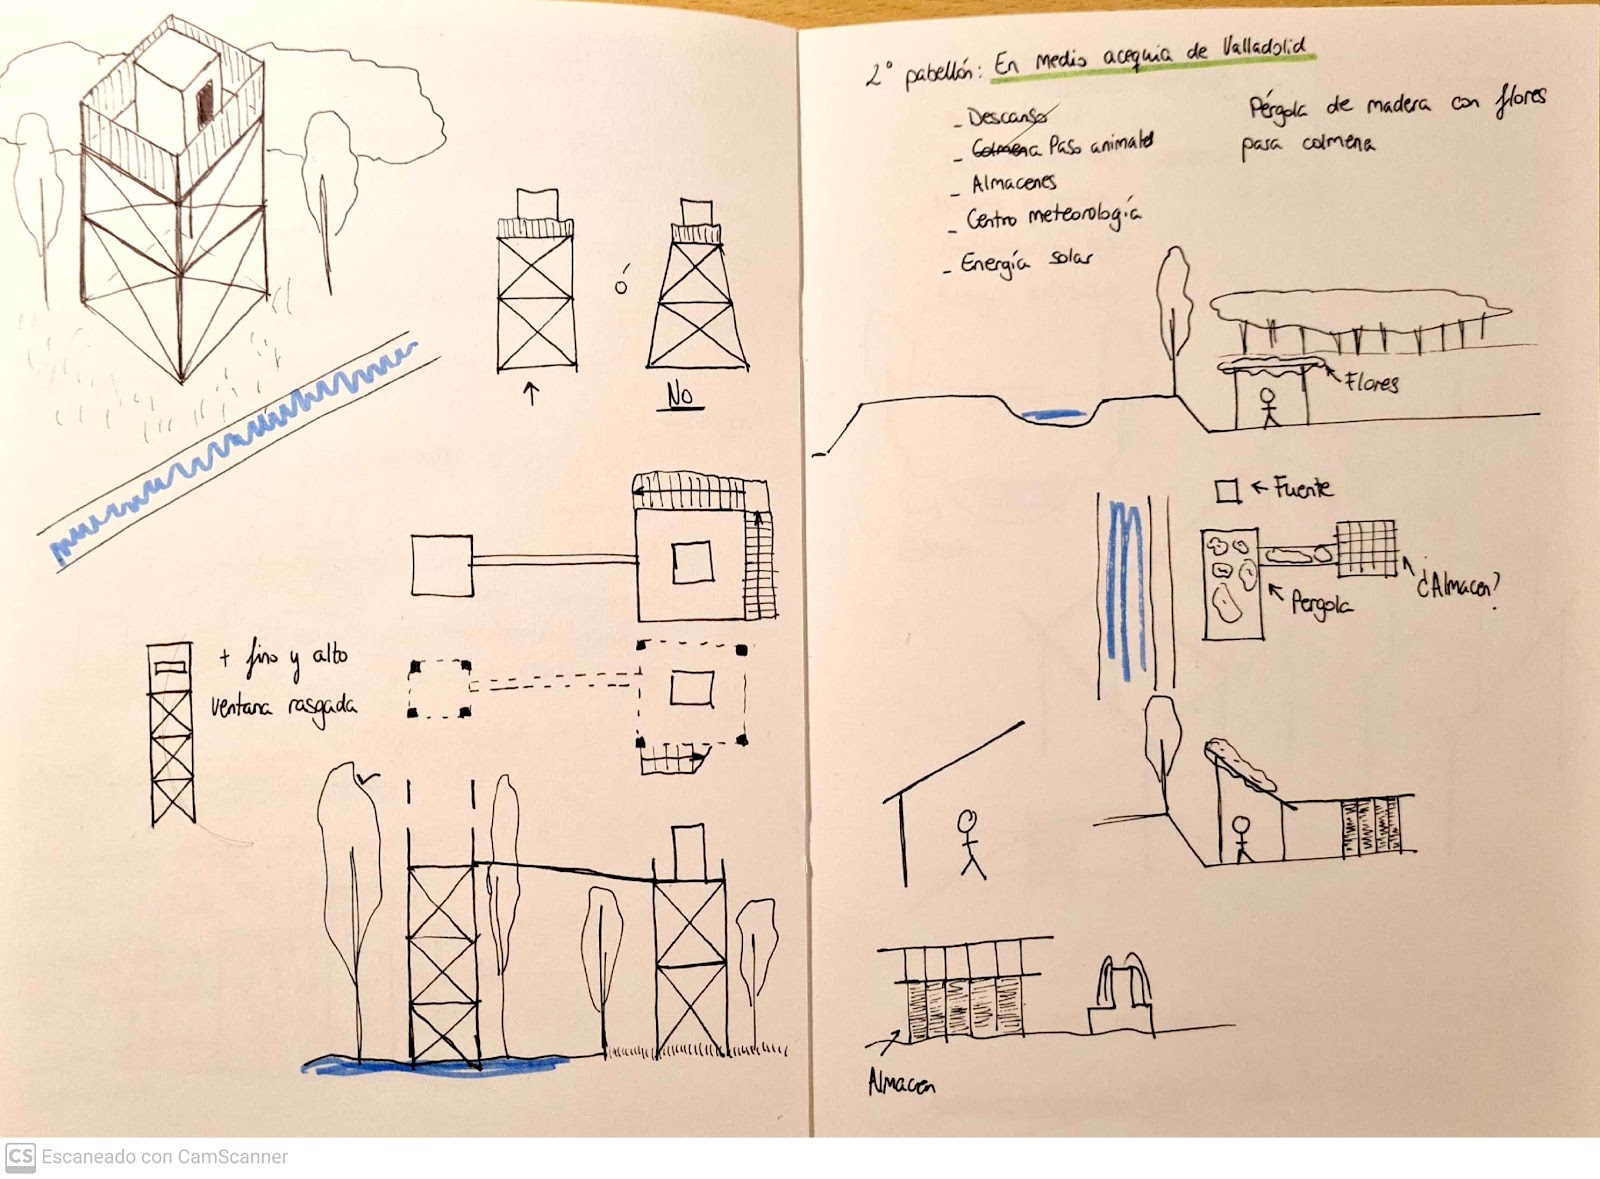 ó
No
+ fino y alto
ventana rasgada
2º pabellón: En medio acequia de Valladolid
- Descanso
- Colmena Paso animales
- Almacenes
- Centro meteorología
- Energía solar
Pérgola de madera con flores
para colmena
Flores
Fuente
¿Almacen?
Pergola
Almacen
CS Escaneado con CamScanner